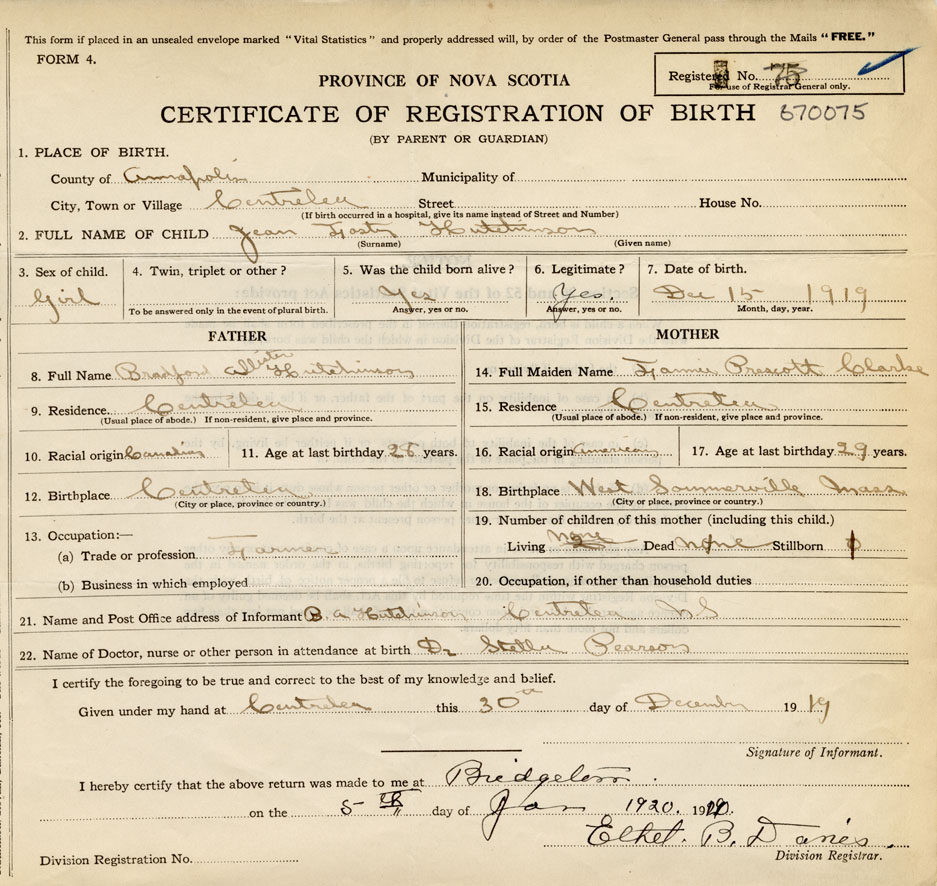 This form if placed in an unsealed envelope marked "Vital Statistics" and properly addressed will, by order of the Postmaster General pass through the Mails "FREE."
FORM 4.
Registered No. 75
For use of Registrar General only.
PROVINCE OF NOVA SCOTIA
CERTIFICATE OF REGISTRATION OF BIRTH 670075
(BY PARENT OR GUARDIAN)
1. PLACE OF BIRTH.
County of Annapolis Municipality of
City, Town or Village Centrelea Street House No.
(If birth occurred in a hospital, give its name instead of Street and Number)
2. FULL NAME OF CHILD Jean Foster Hutchinson
(Surname) (Given name)
3. Sex of child. 4. Twin, triplet or other? 5. Was the child born alive? 6. Legitimate? 7. Date of birth.
Girl Yes Yes. Dec 15 1919
To be answered only in the event of plural birth. Answer, yes or no. Answer, yes or no. Month, day, year.
FATHER
8. Full Name Bradford Allister Hutchinson
9. Residence. Centrelea
(Usual place of abode.) If non-resident, give place and province.
10. Racial origin Canadian 11. Age at last birthday 28 years.
12. Birthplace Centrelea
(City or place, province or country.)
13. Occupation:—
(a) Trade or profession Farmer
(b) Business in which employed
MOTHER
14. Full Maiden Name Fannie Prescott Clarke
15. Residence Centrelea
(Usual place of abode.) If non-resident, give place and province.
16. Racial origin American 17. Age at last birthday 29 years.
18. Birthplace West Sommerville Mass
(City or place, province or country.)
19. Number of children of this mother (including this child.)
Living none Dead none Stillborn
20. Occupation, if other than household duties
21. Name and Post Office address of Informant B. A Hutchinson Centrelea N.S
22. Name of Doctor, nurse or other person in attendance at birth Dr Stella Pearson
I certify the foregoing to be true and correct to the best of my knowledge and belief.
Given under my hand at Centrelea this 30 day of December 1919
Signature of Informant.
I hereby certify that the above return was made to me at Bridgetown.
on the 5th day of Jan 1920. 19
Ethel. B. Davies.
Division Registration No. Division Registrar.